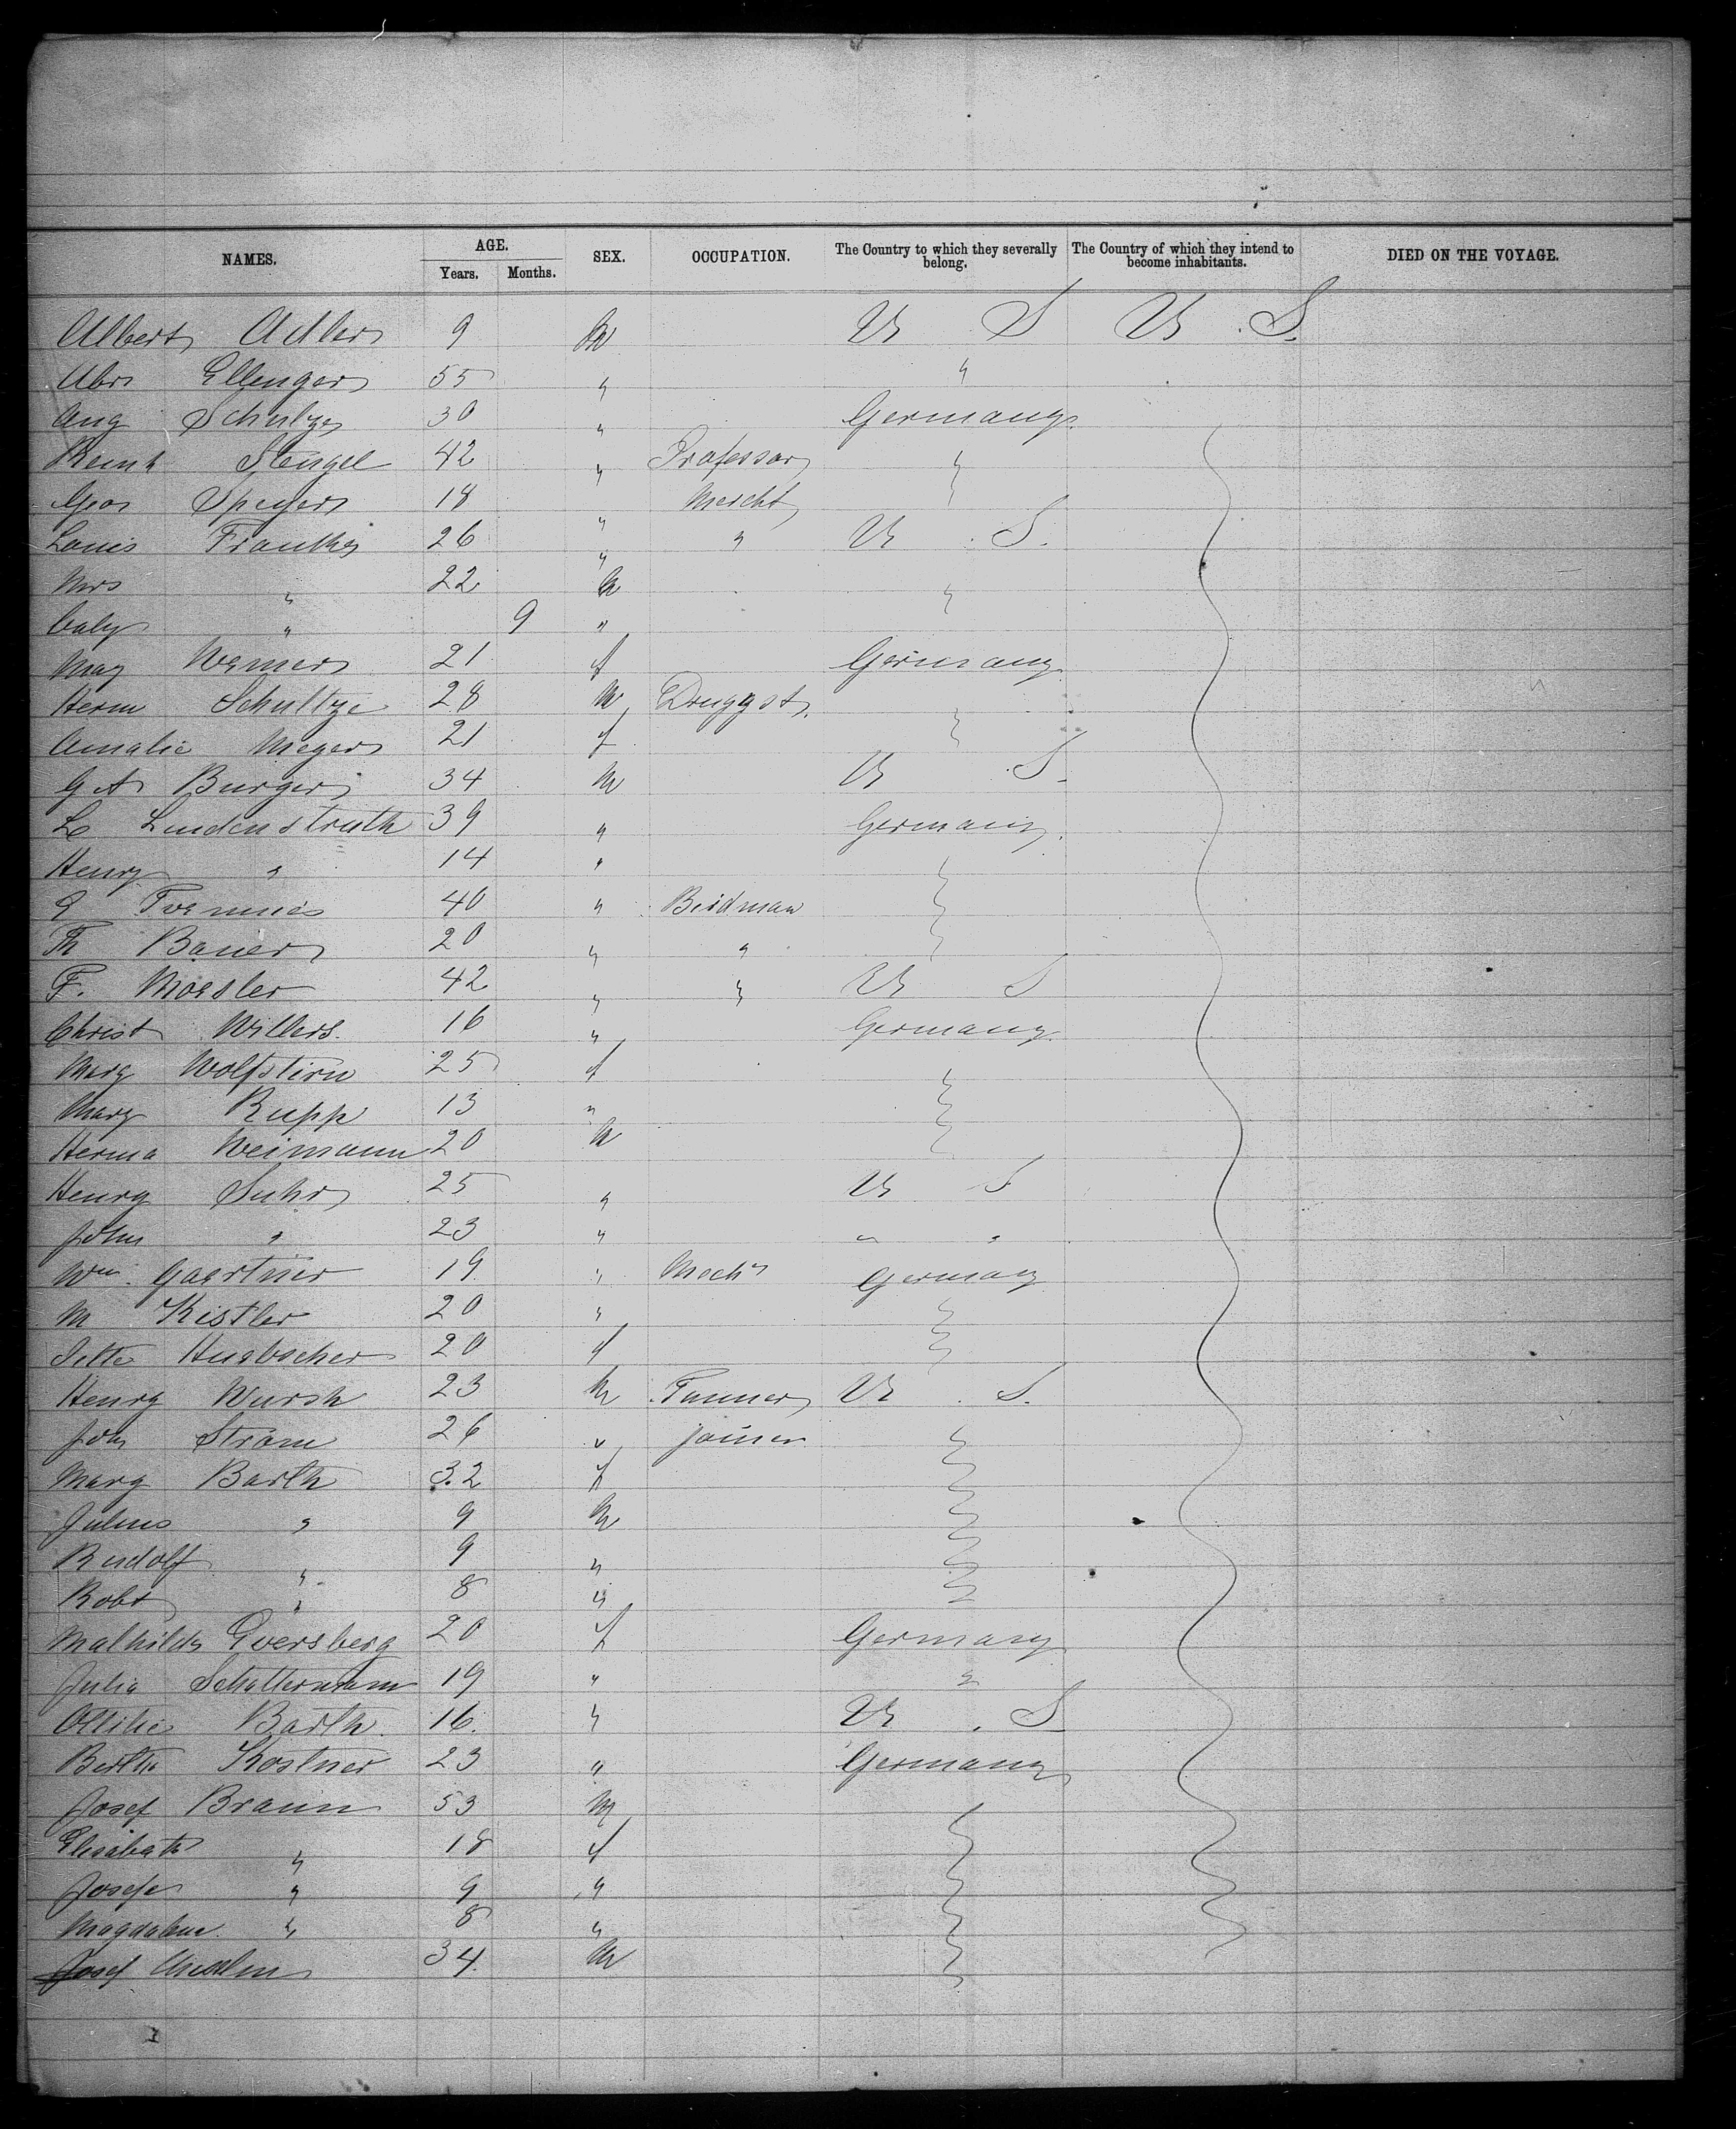 NAMES. AGE. Years. Months. SEX. OCCUPATION. The Country to which they severally belong. The Country of which they intend to become inhabitants. DIED ON THE VOYAGE.
Albert Adler 9 M U S U. S.
Abr Ellenger 55 " "
Aug Schultze 30 " Germany
Reinh Stengel 42 " Professor "
Geo Speyer 18 " Mercht "
Louis Franke 26 " " U. S.
Mrs " 22 M "
Baby " 9 "
May Werner 21 f Germany
Herm Schultze 28 M Druggst "
Amalie Meyer 21 f "
G A Burger 34 M U S.
Lindenstruth 39 " Germany
Henry " 14 " "
40 " Birdman "
Th Bauer 20 " " "
F. Moesler 42 " " U S
Christ Willers. 16 " Germany
Marg Wolfstirn 25 f "
Mary Rupp 13 " "
Herma Weimann 20 M "
Henry Suhr 25 " U S
John " 23 " " "
Wm. Gaertner 19 " Mech Germany
M Kistler 20 " "
20 f "
Henry Wursh 23 M Tanner U. S.
Joh Strom 26 " joiner "
Marg Barth 32 f "
Julius " 9 M "
Rudolf " 9 " "
Robt " 8 " "
Mathilde Eversberg 20 f Germany
Julia Schattermann 19 " "
Ottilie Barth 16. " U. S
Bertha Kostner 23 " Germany
Josef Braun 53 M "
Elisabeth " 18 f "
Josefe " 9 " "
Magdalene " 8 " "
Josef 34. M "